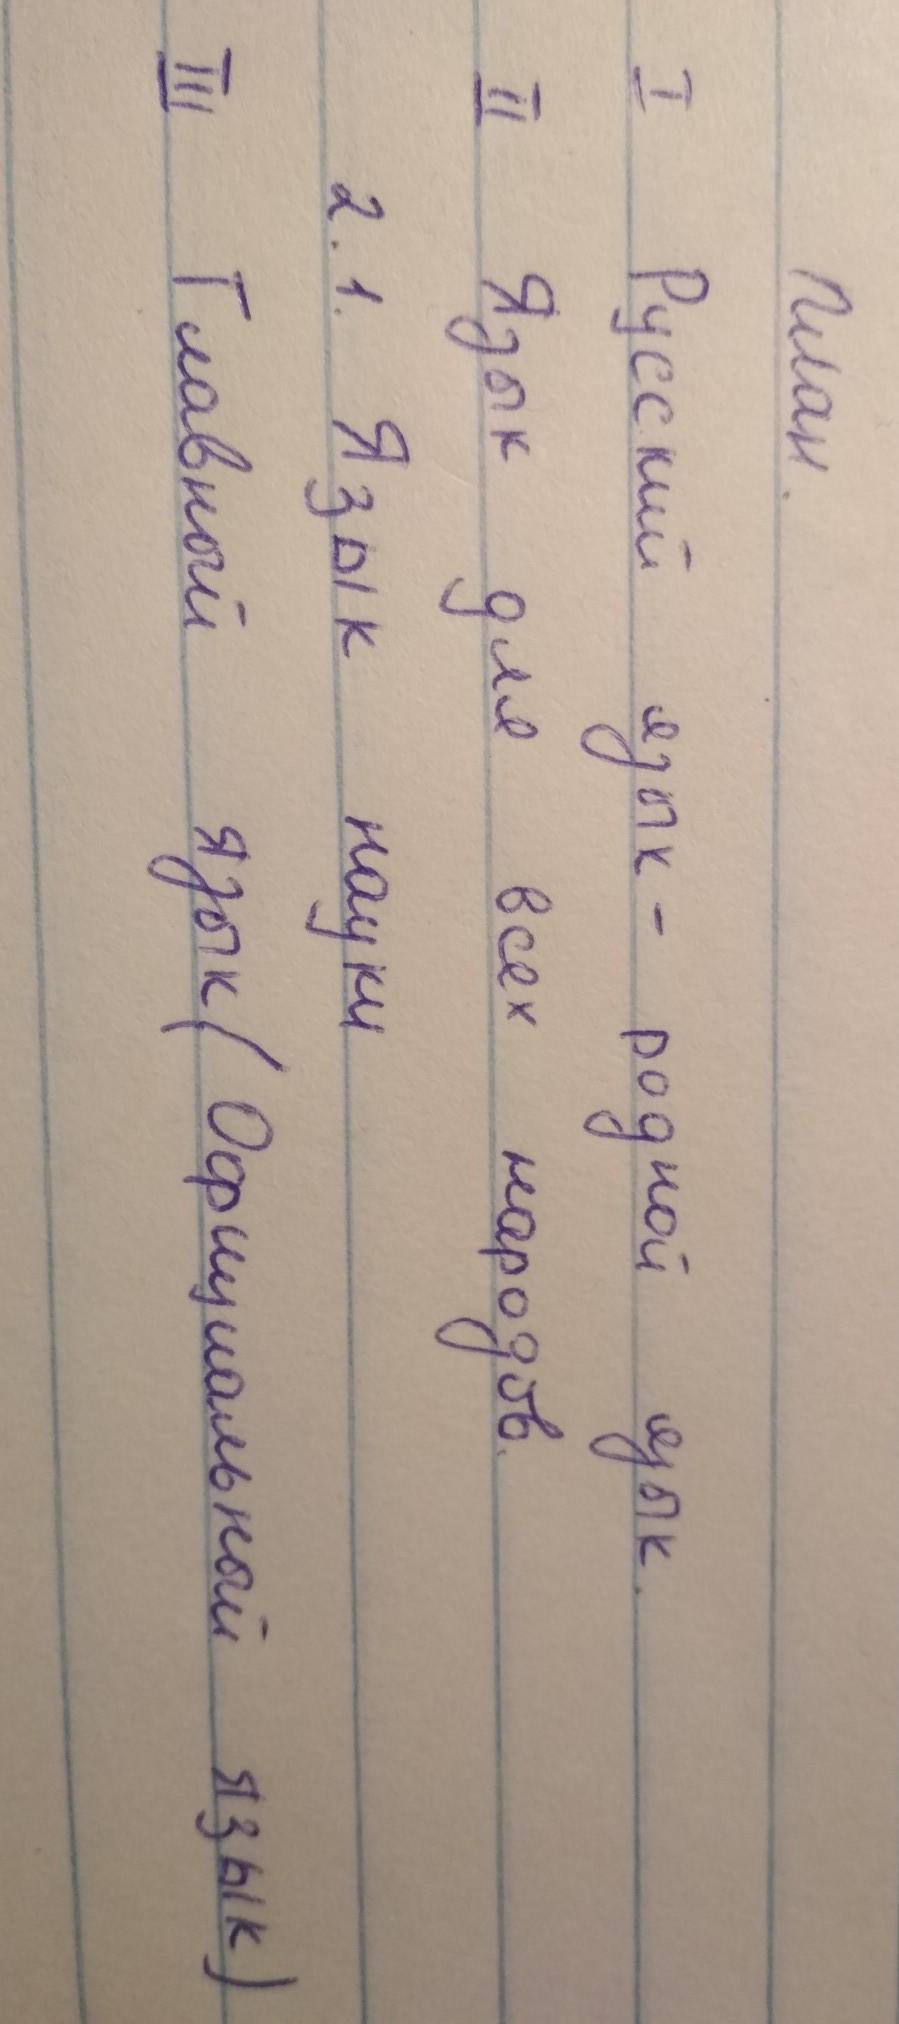 План.
I Русский язык - родной язык.
II Язык для всех народов.
2.1. Язык науки
III Главный язык (Официальный язык)